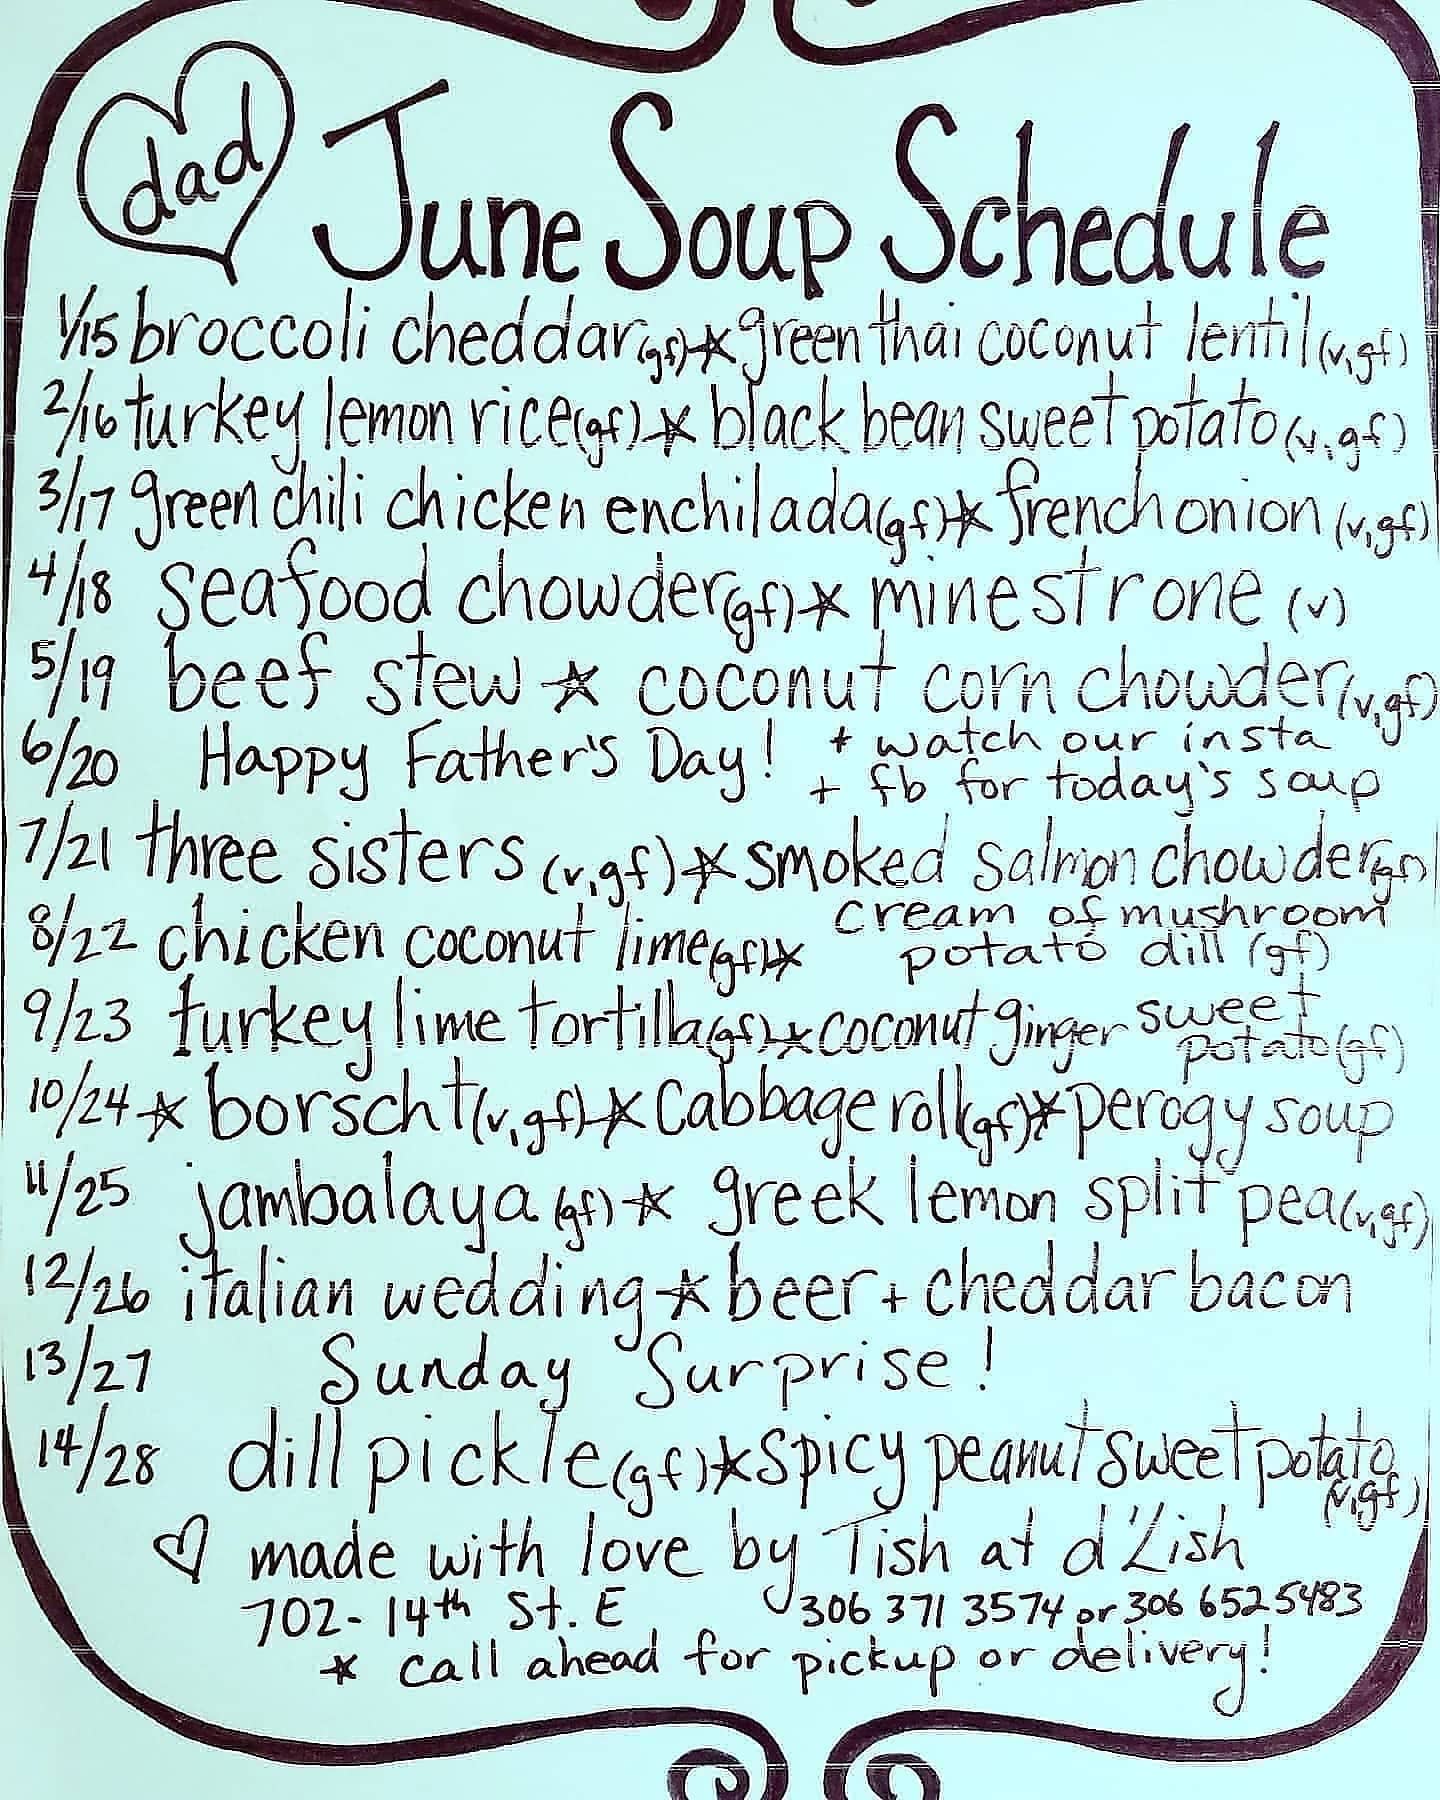 dad
June Soup Schedule
1/15 broccoli cheddar (gf) ☆ green thai coconut lentil (v,gf)
2/16 turkey lemon rice (gf) ☆ black bean sweet potato (v,gf)
3/17 green chili chicken enchilada (gf) ☆ french onion (v,gf)
4/18 seafood chowder (gf) ☆ minestrone (v)
5/19 beef stew ☆ coconut corn chowder (v,gf)
6/20 Happy Father's Day! * watch our insta
+ fb for today's soup
7/21 three sisters (v,gf) ☆ smoked salmon chowder (gf)
8/22 chicken coconut lime (gf) ☆ cream of mushroom
potato dill (gf)
9/23 turkey lime tortilla (gf) ☆ coconut ginger sweet
potato (gf)
10/24 ☆ borscht (v,gf) ☆ cabbage roll (gf) ☆ perogy soup
11/25 jambalaya (gf) ☆ greek lemon split pea (v,gf)
12/26 italian wedding ☆ beer + cheddar bacon
13/27 Sunday Surprise!
14/28 dill pickle (gf) ☆ spicy peanut sweet potato
(v,gf)
♡ made with love by Tish at d'Lish
702-14th St. E 306 371 3574 or 306 652 5483
* call ahead for pickup or delivery!